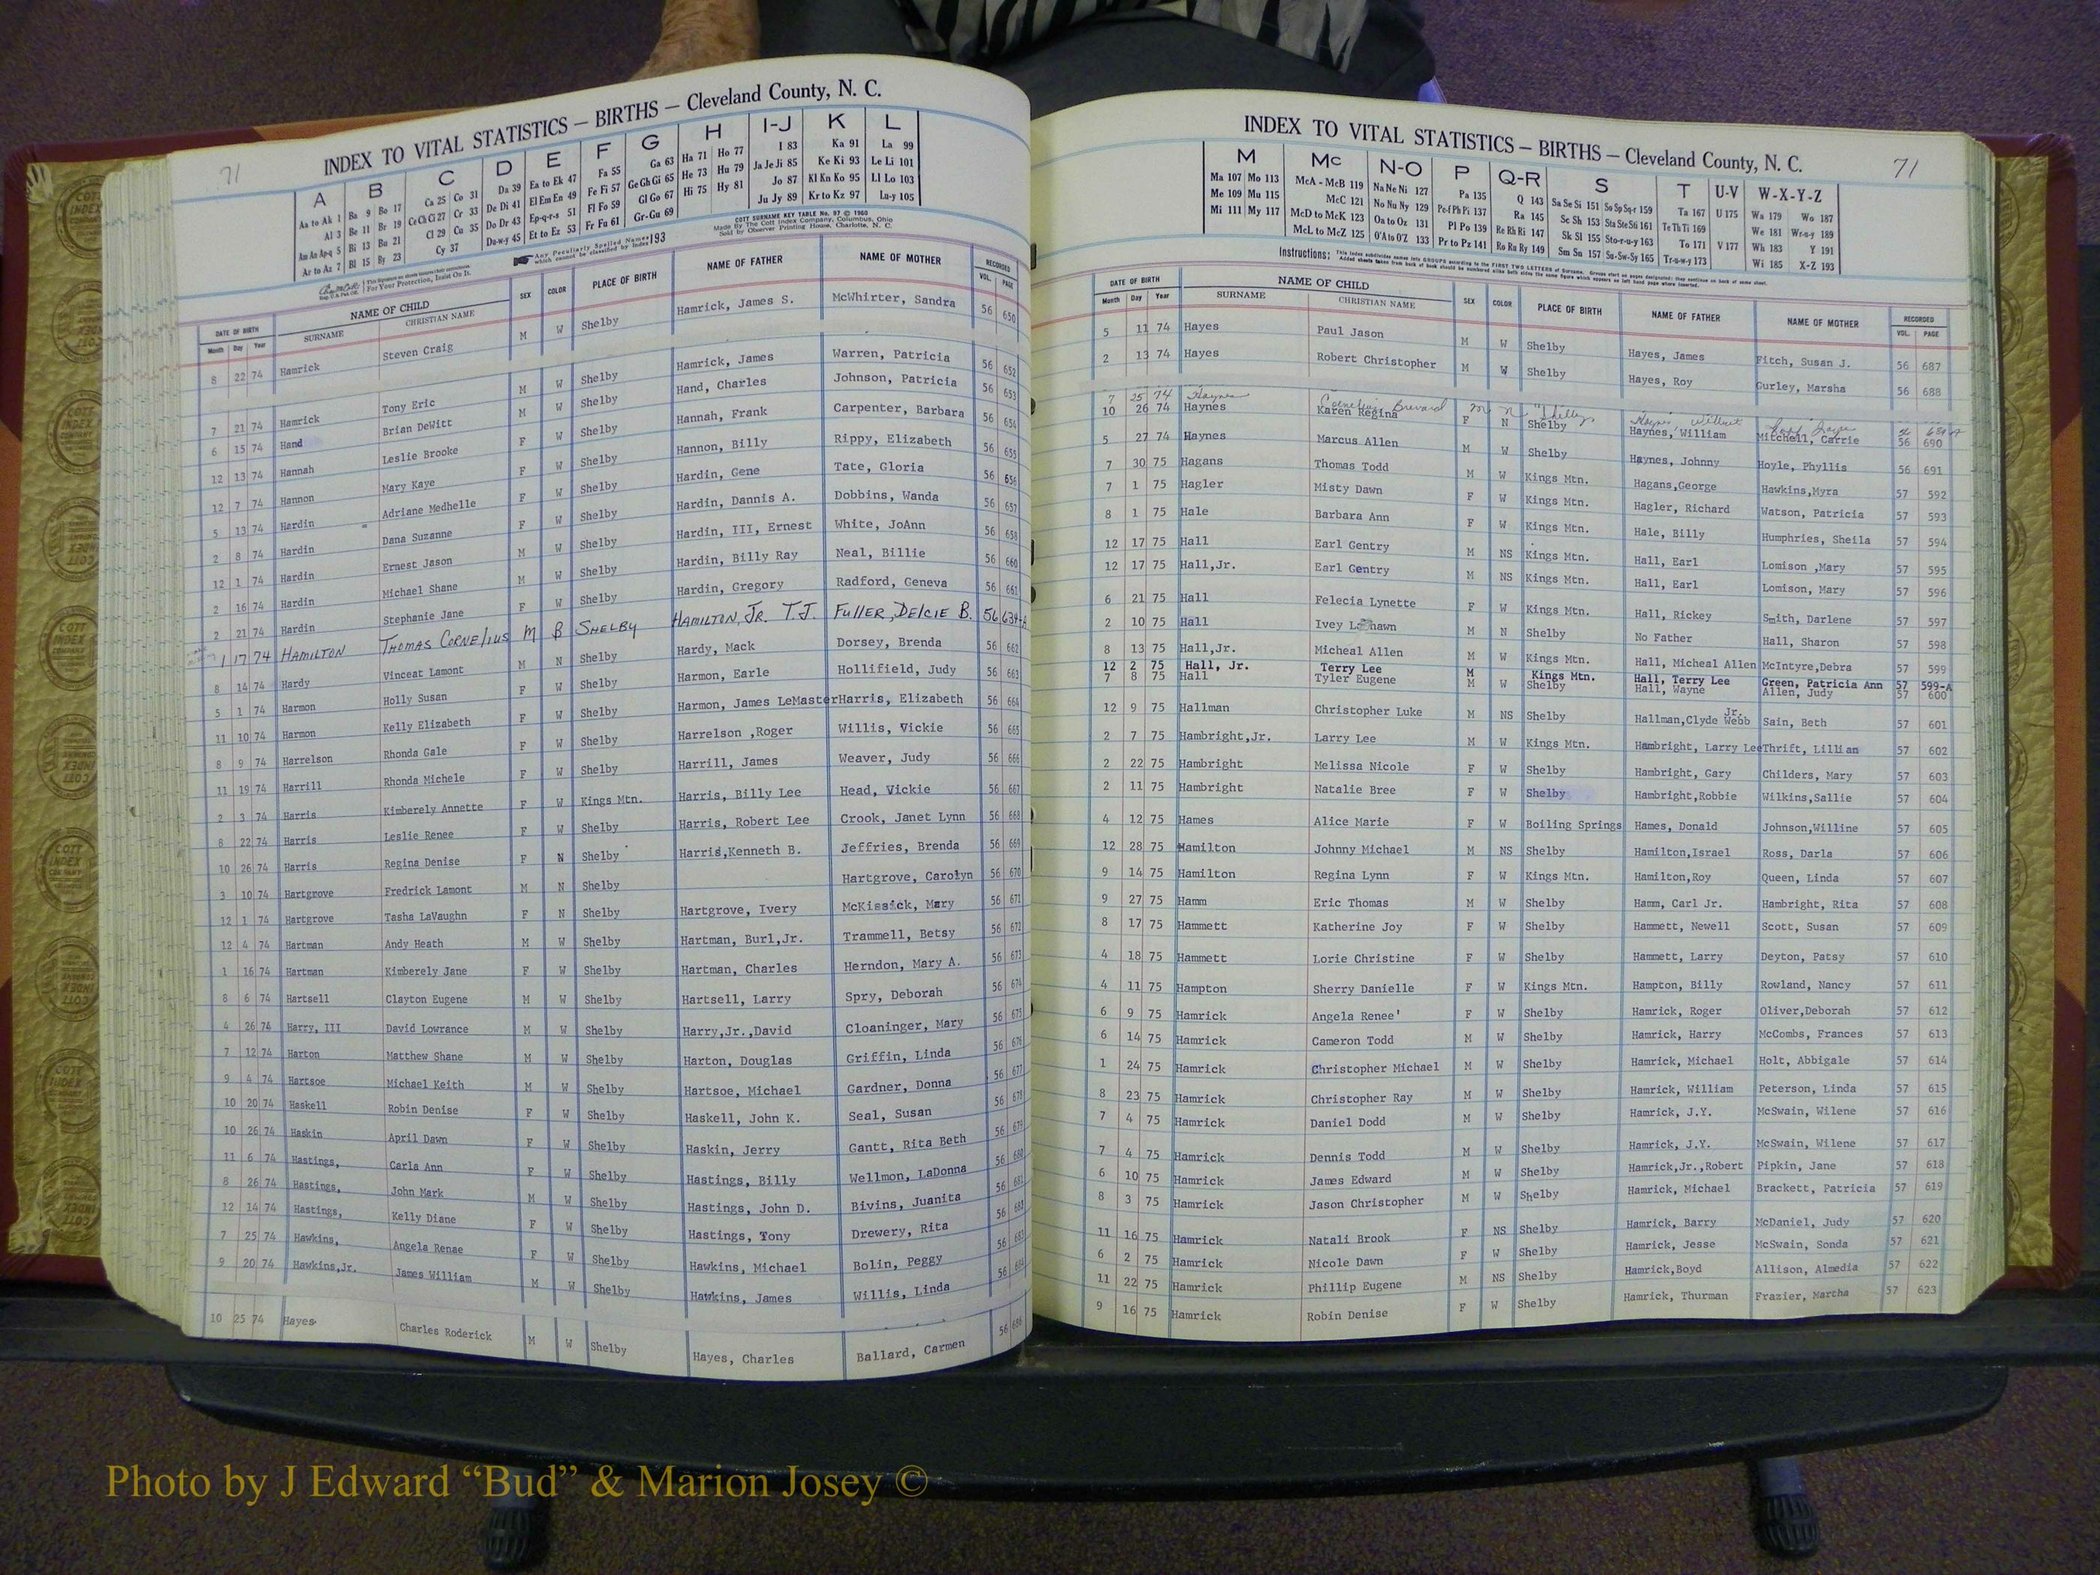 71
INDEX TO VITAL STATISTICS — BIRTHS — Cleveland County, N. C.
A B C D E F G H I-J K L
Aa to Ak 1 Ba 9 Bo 17 Ca 25 Co 31 Da 39 Ea to Ek 47 Fa 55 Ga 63 Ha 71 Ho 77 I 83 Ka 91 La 99
Al 3 Be 11 Br 19 Ce Ch Ci 27 Cr 33 De Di 41 El Em En 49 Fe Fi 57 Ge Gh Gi 65 He 73 Hu 79 Ja Je Ji 85 Ke Ki 93 Le Li 101
Am An Ap-q 5 Bi 13 Bu 21 Cl 29 Cu 35 Do Dr 43 Ep-q-r-s 51 Fl Fo 59 Gl Go 67 Hi 75 Hy 81 Jo 87 Kl Kn Ko 95 Ll Lo 103
Ar to Az 7 Bl 15 By 23 Cy 37 Du-w-y 45 Et to Ez 53 Fr Fu 61 Gr-Gu 69 Ju Jy 89 Kr to Kz 97 Lu-y 105
COTT SURNAME KEY TABLE No. 97 © 1960
Made By The Cott Index Company, Columbus, Ohio
Sold by Observer Printing House, Charlotte, N. C.
Any Peculiarly Spelled Names which cannot be classified by Index 193
For Your Protection, Insist On It.
DATE OF BIRTH NAME OF CHILD SEX COLOR PLACE OF BIRTH NAME OF FATHER NAME OF MOTHER RECORDED
Month Day Year SURNAME CHRISTIAN NAME VOL. PAGE
8 22 74 Hamrick Steven Craig M W Shelby Hamrick, James S. McWhirter, Sandra 56 650
7 21 74 Hamrick Tony Eric M W Shelby Hamrick, James Warren, Patricia 56 652
6 15 74 Hand Brian DeWitt M W Shelby Hand, Charles Johnson, Patricia 56 653
12 13 74 Hannah Leslie Brooke F W Shelby Hannah, Frank Carpenter, Barbara 56 654
12 7 74 Hannon Mary Kaye F W Shelby Hannon, Billy Rippy, Elizabeth 56 655
5 13 74 Hardin Adriane Medhelle F W Shelby Hardin, Gene Tate, Gloria 56 656
2 8 74 Hardin Dana Suzanne F W Shelby Hardin, Dannis A. Dobbins, Wanda 56 657
12 1 74 Hardin Ernest Jason M W Shelby Hardin, III, Ernest White, JoAnn 56 658
2 16 74 Hardin Michael Shane M W Shelby Hardin, Billy Ray Neal, Billie 56 660
2 21 74 Hardin Stephanie Jane F W Shelby Hardin, Gregory Radford, Geneva 56 661
1 17 74 HAMILTON THOMAS CORNElIUS M B SHELBY HAMILTON, JR. T.J. FUllER, DELCIE B. 56 634-A
8 14 74 Hardy Vinceat Lamont M N Shelby Hardy, Mack Dorsey, Brenda 56 662
5 1 74 Harmon Holly Susan F W Shelby Harmon, Earle Hollifield, Judy 56 663
11 10 74 Harmon Kelly Elizabeth F W Shelby Harmon, James LeMaster Harris, Elizabeth 56 664
8 9 74 Harrelson Rhonda Gale F W Shelby Harrelson ,Roger Willis, Vickie 56 665
11 19 74 Harrill Rhonda Michele F W Shelby Harrill, James Weaver, Judy 56 666
2 3 74 Harris Kimberely Annette F W Kings Mtn. Harris, Billy Lee Head, Vickie 56 667
8 22 74 Harris Leslie Renee F W Shelby Harris, Robert Lee Crook, Janet Lynn 56 668
10 26 74 Harris Regina Denise F N Shelby Harris,Kenneth B. Jeffries, Brenda 56 669
3 10 74 Hartgrove Fredrick Lamont M N Shelby Hartgrove, Carolyn 56 670
12 1 74 Hartgrove Tasha LaVaughn F N Shelby Hartgrove, Ivery McKissick, Mary 56 671
12 4 74 Hartman Andy Heath M W Shelby Hartman, Burl,Jr. Trammell, Betsy 56 672
1 16 74 Hartman Kimberely Jane F W Shelby Hartman, Charles Herndon, Mary A. 56 673
8 6 74 Hartsell Clayton Eugene M W Shelby Hartsell, Larry Spry, Deborah 56 674
4 26 74 Harry, III David Lowrance M W Shelby Harry,Jr.,David Cloaninger, Mary 56 675
7 12 74 Harton Matthew Shane M W Shelby Harton, Douglas Griffin, Linda 56 676
9 4 74 Hartsoe Michael Keith M W Shelby Hartsoe, Michael Gardner, Donna 56 677
10 20 74 Haskell Robin Denise F W Shelby Haskell, John K. Seal, Susan 56 678
10 26 74 Haskin April Dawn F W Shelby Haskin, Jerry Gantt, Rita Beth 56 679
11 6 74 Hastings, Carla Ann F W Shelby Hastings, Billy Wellmon, LaDonna 56 680
8 26 74 Hastings, John Mark M W Shelby Hastings, John D. Bivins, Juanita 56 681
12 14 74 Hastings, Kelly Diane F W Shelby Hastings, Tony Drewery, Rita 56
7 25 74 Hawkins, Angela Renae F W Shelby Hawkins, Michael Bolin, Peggy 56
9 20 74 Hawkins,Jr. James William M W Shelby Hawkins, James Willis, Linda 56
10 25 74 Hayes Charles Roderick M W Shelby Hayes, Charles Ballard, Carmen 56 686
INDEX TO VITAL STATISTICS — BIRTHS — Cleveland County, N. C. 71
M Mc N-O P Q-R S T U-V W-X-Y-Z
Ma 107 Mo 113 McA - McB 119 Na Ne Ni 127 Pa 135 Q 143 Sa Se Si 151 So Sp Sq-r 159 Ta 167 U 175 Wa 179 Wo 187
Me 109 Mu 115 McC 121 No Nu Ny 129 Pe-f Ph Pi 137 Ra 145 Sc Sh 153 Sta Ste Sti 161 Te Th Ti 169 We 181 Wr-u-y 189
Mi 111 My 117 McD to McK 123 Oa to Oz 131 Pl Po 139 Re Rh Ri 147 Sk Sl 155 Sto-r-u-y 163 To 171 V 177 Wh 183 Y 191
McL to McZ 125 O'A to O'Z 133 Pr to Pz 141 Ro Ru Ry 149 Sm Sn 157 Su-Sw-Sy 165 Tr-u-w-y 173 Wi 185 X-Z 193
Instructions: This Index subdivides names into GROUPS according to the FIRST TWO LETTERS of Surname. Groups start on pages designated; then continue on back of same sheet.
Added sheets taken from back of book should be numbered alike both sides the same figure which appears on left hand page where inserted.
DATE OF BIRTH NAME OF CHILD SEX COLOR PLACE OF BIRTH NAME OF FATHER NAME OF MOTHER RECORDED
Month Day Year SURNAME CHRISTIAN NAME VOL. PAGE
5 11 74 Hayes Paul Jason M W Shelby Hayes, James Fitch, Susan J. 56 687
2 13 74 Hayes Robert Christopher M W Shelby Hayes, Roy Gurley, Marsha 56 688
7 25 74 Haynes Cornelius Brevard M N Shelby Haynes
10 26 74 Haynes Karen Regina F N Shelby Haynes, William Mitchell, Carrie 56 690
5 27 74 Haynes Marcus Allen M W Shelby Haynes, Johnny Hoyle, Phyllis 56 691
7 30 75 Hagans Thomas Todd M W Kings Mtn. Hagans,George Hawkins,Myra 57 592
7 1 75 Hagler Misty Dawn F W Kings Mtn. Hagler, Richard Watson, Patricia 57 593
8 1 75 Hale Barbara Ann F W Kings Mtn. Hale, Billy Humphries, Sheila 57 594
12 17 75 Hall Earl Gentry M NS Kings Mtn. Hall, Earl Lomison ,Mary 57 595
12 17 75 Hall,Jr. Earl Gentry M NS Kings Mtn. Hall, Earl Lomison, Mary 57 596
6 21 75 Hall Felecia Lynette F W Kings Mtn. Hall, Rickey Smith, Darlene 57 597
2 10 75 Hall Ivey LaShawn M N Shelby No Father Hall, Sharon 57 598
8 13 75 Hall,Jr. Micheal Allen M W Kings Mtn. Hall, Micheal Allen McIntyre,Debra 57 599
12 2 75 Hall, Jr. Terry Lee M Kings Mtn. Hall, Terry Lee Green, Patricia Ann 57 599-A
7 8 75 Hall Tyler Eugene M W Shelby Hall, Wayne Allen, Judy 57 600
12 9 75 Hallman Christopher Luke M NS Shelby Hallman,Clyde Webb Jr. Sain, Beth 57 601
2 7 75 Hambright,Jr. Larry Lee M W Kings Mtn. Hambright, Larry Lee Thrift, Lillian 57 602
2 22 75 Hambright Melissa Nicole F W Shelby Hambright, Gary Childers, Mary 57 603
2 11 75 Hambright Natalie Bree F W Shelby Hambright,Robbie Wilkins,Sallie 57 604
4 12 75 Hames Alice Marie F W Boiling Springs Hames, Donald Johnson,Willine 57 605
12 28 75 Hamilton Johnny Michael M NS Shelby Hamilton,Israel Ross, Darla 57 606
9 14 75 Hamilton Regina Lynn F W Kings Mtn. Hamilton,Roy Queen, Linda 57 607
9 27 75 Hamm Eric Thomas M W Shelby Hamm, Carl Jr. Hambright, Rita 57 608
8 17 75 Hammett Katherine Joy F W Shelby Hammett, Newell Scott, Susan 57 609
4 18 75 Hammett Lorie Christine F W Shelby Hammett, Larry Deyton, Patsy 57 610
4 11 75 Hampton Sherry Danielle F W Kings Mtn. Hampton, Billy Rowland, Nancy 57 611
6 9 75 Hamrick Angela Renee' F W Shelby Hamrick, Roger Oliver,Deborah 57 612
6 14 75 Hamrick Cameron Todd M W Shelby Hamrick, Harry McCombs, Frances 57 613
1 24 75 Hamrick Christopher Michael M W Shelby Hamrick, Michael Holt, Abbigale 57 614
8 23 75 Hamrick Christopher Ray M W Shelby Hamrick, William Peterson, Linda 57 615
7 4 75 Hamrick Daniel Dodd M W Shelby Hamrick, J.Y. McSwain, Wilene 57 616
7 4 75 Hamrick Dennis Todd M W Shelby Hamrick, J.Y. McSwain, Wilene 57 617
6 10 75 Hamrick James Edward M W Shelby Hamrick,Jr.,Robert Pipkin, Jane 57 618
8 3 75 Hamrick Jason Christopher M W Shelby Hamrick, Michael Brackett, Patricia 57 619
11 16 75 Hamrick Natali Brook F NS Shelby Hamrick, Barry McDaniel, Judy 57 620
6 2 75 Hamrick Nicole Dawn F W Shelby Hamrick, Jesse McSwain, Sonda 57 621
11 22 75 Hamrick Phillip Eugene M NS Shelby Hamrick,Boyd Allison, Almedia 57 622
9 16 75 Hamrick Robin Denise F W Shelby Hamrick, Thurman Frazier, Martha 57 623
Photo by J Edward “Bud” & Marion Josey ©